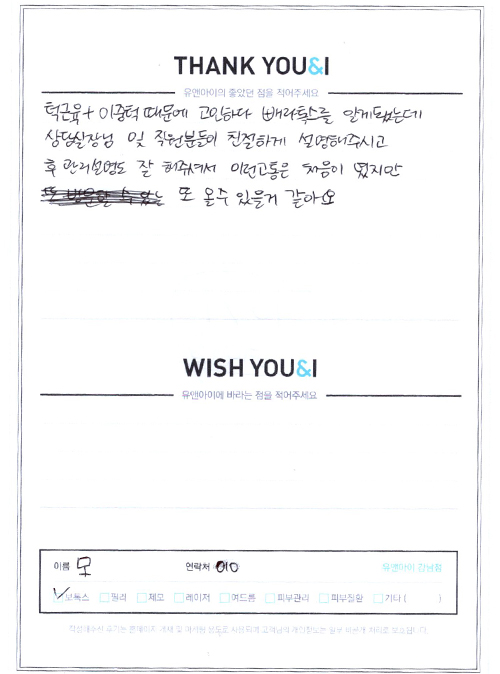 THANK YOU&I
유앤아이의 좋았던 점을 적어주세요
턱근육+ 이중턱 때문에 고민하다 빼라톡스를 알게됐는데
상담실장님 및 직원분들이 친절하게 설명해주시고
후 관리설명도 잘 해주셔서 이런고통은 처음이 였지만
또 올수 있을거 같아요
WISH YOU&I
유앤아이에 바라는 점을 적어주세요
이름 모 연락처 010 유앤아이 강남점
보톡스 필러 제모 레이저 여드름 피부관리 피부질환 기타 ( )